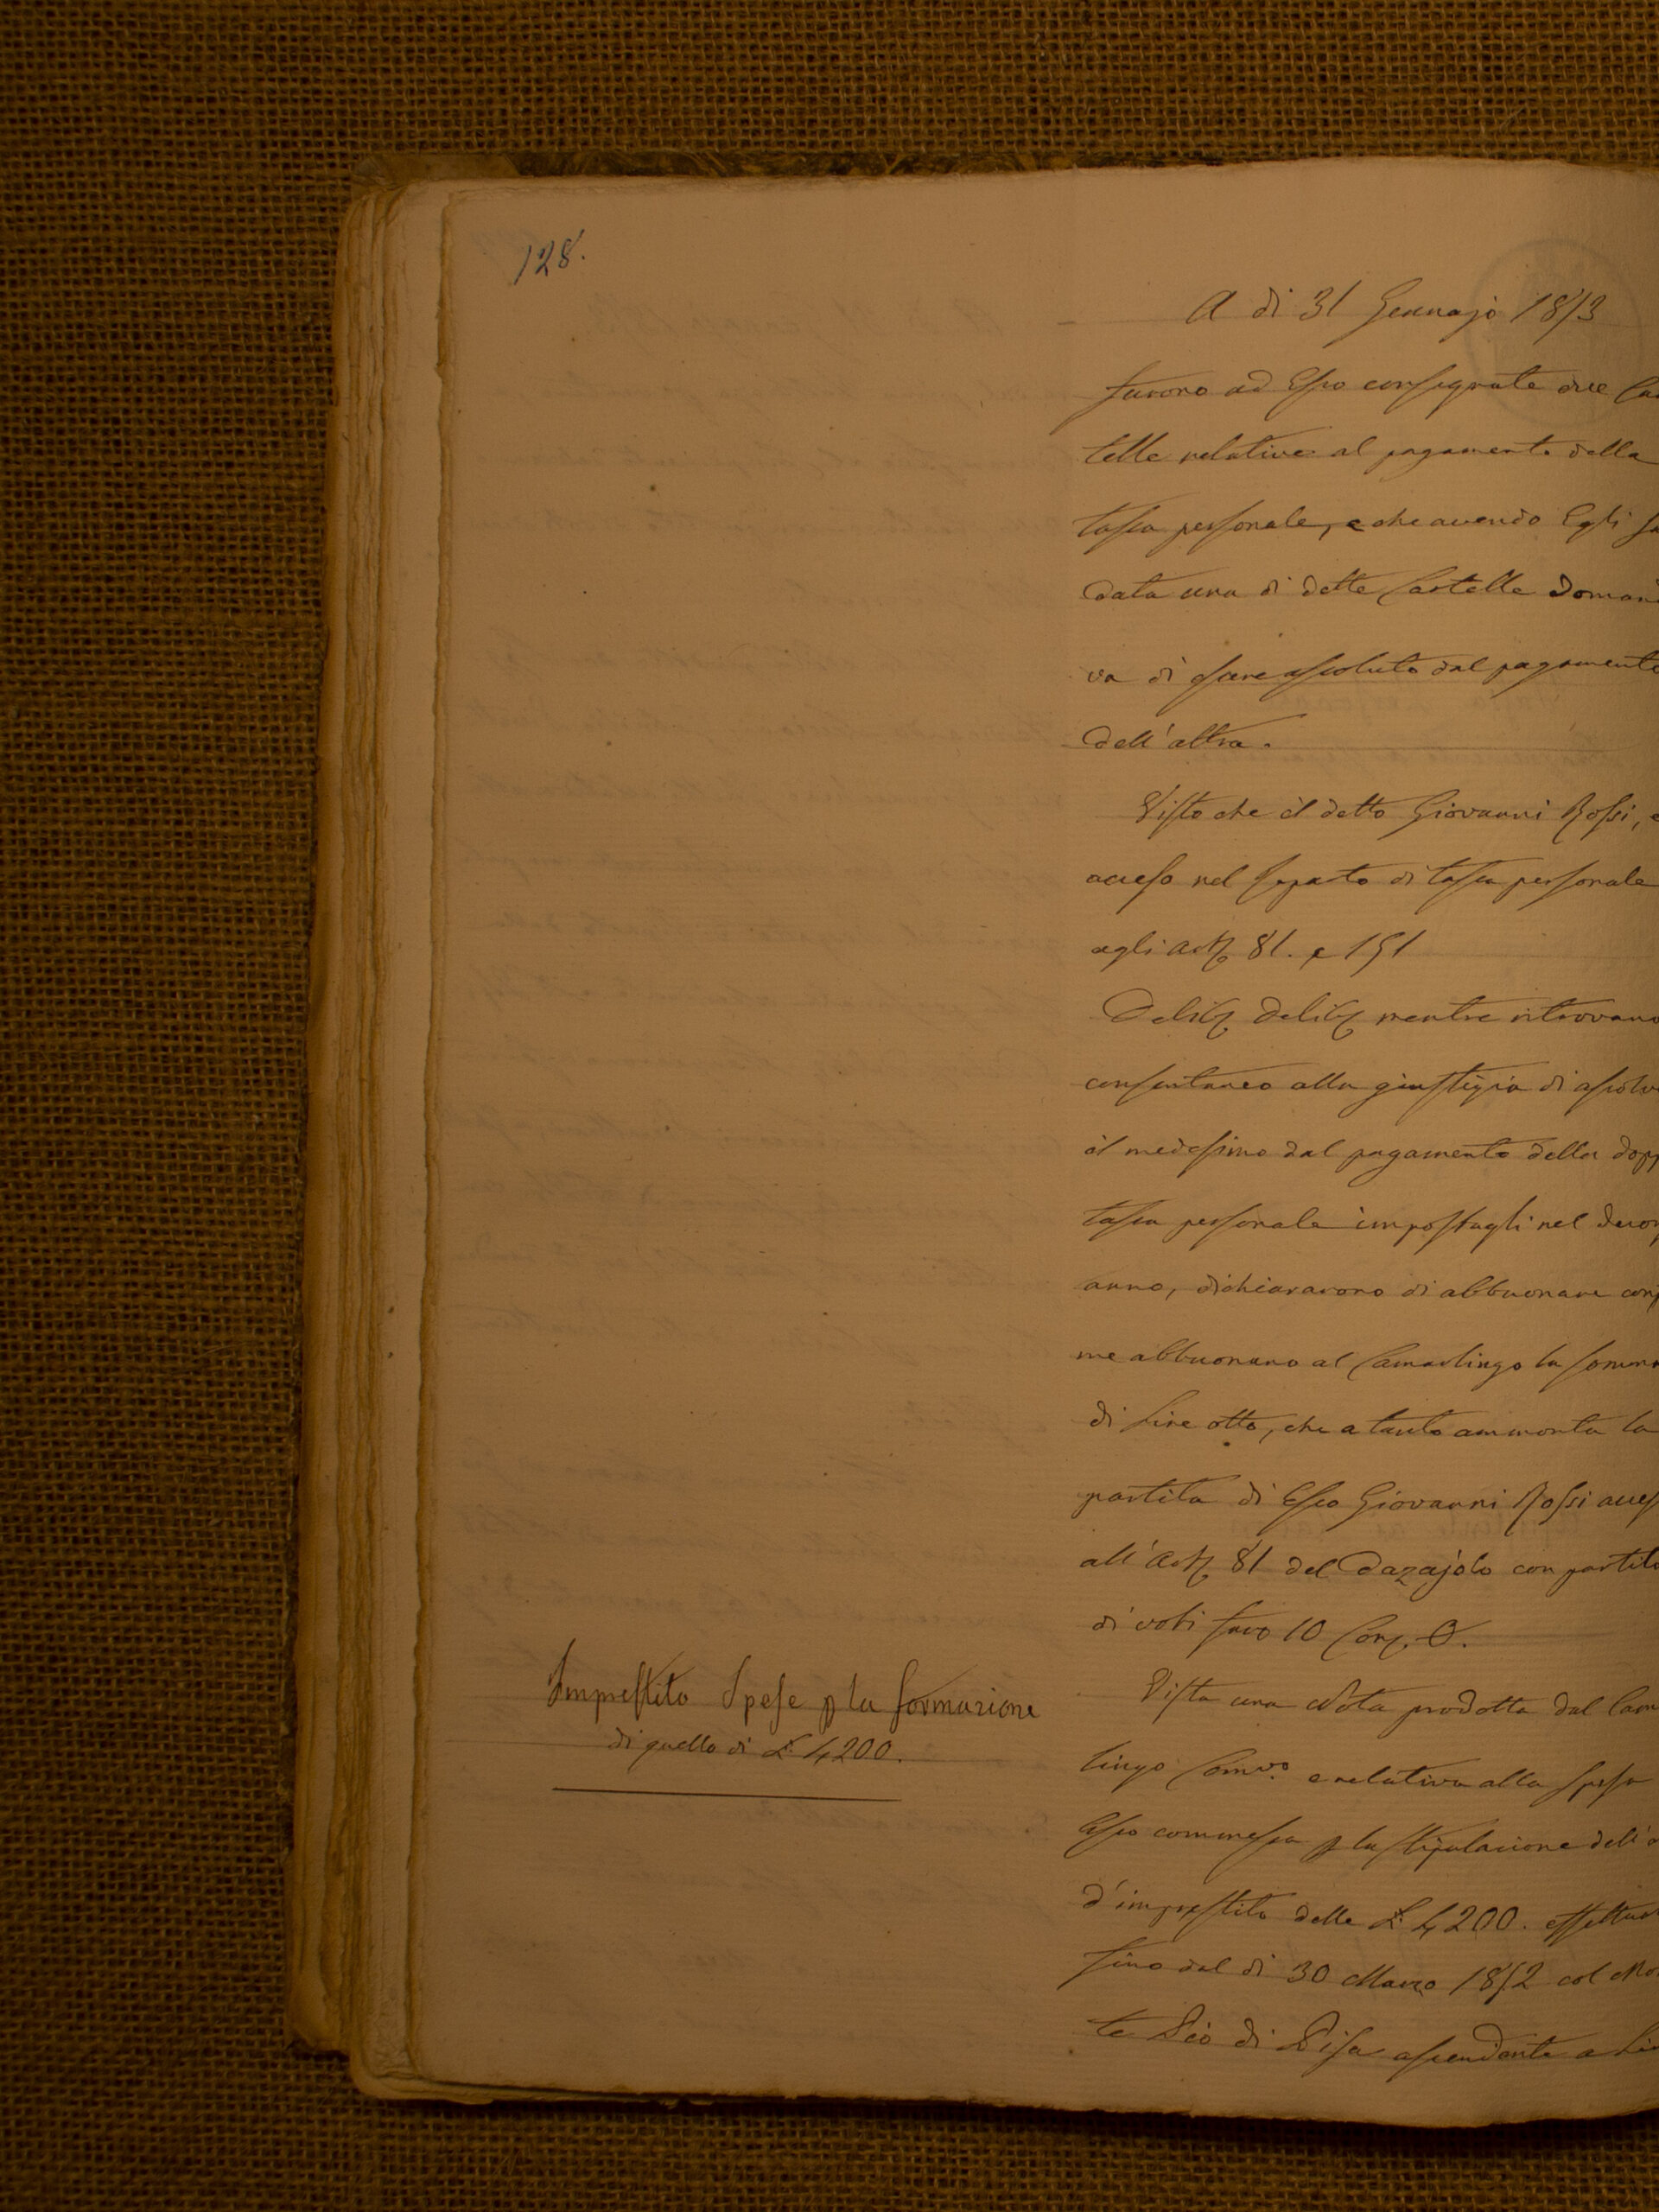 128.
A dì 31 Gennajo 1853
furono ad Esso consegnate due Car
telle relative al pagamento della
tassa personale, e che avendo Egli sal
data una di dette Cartelle domanda
va di essere assoluto dal pagamento
dell'altra.
Visto che il detto Giovanni Rossi, è
acceso nel reparto di tassa personale
agli Art. 81. e 151
Delib. Delib. mentre ritrovano
consentaneo alla giustizia di assolve
il medesimo dal pagamento della dopp
tassa personale impostagli nel decor
anno, dichiararono di abbuonare con
me abbuonano al Camarlingo la somma
di Lire otto, che a tanto ammonta la
partita di Esso Giovanni Rossi acces
all'Art. 81 del Dazajolo con partito
di voti favo 10 Con. 0.
Imprestito Spese p la formazione
di quello di £ 4200.
Vista una Nota prodotta dal Cam
lingo Com.vo e relativa alla spesa
Esso commessa p la stipulazione dell'
d'imprestito delle £ 4200. effettua
fino dal dì 30 Marzo 1852 col Mon
te Pio di Pisa ascendente a Li